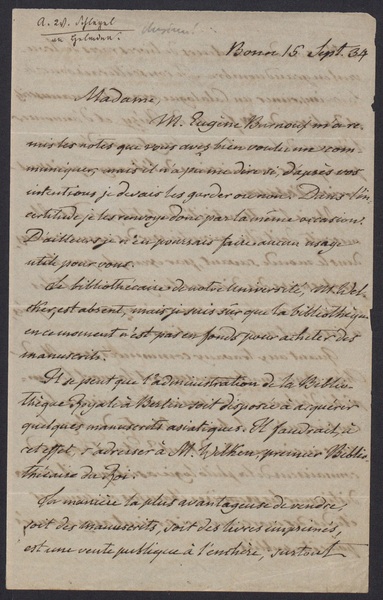 A. W. Schlegel
an
Bonn 15 Sept. 34
Madame,
M. Eugène Burnouf m'a re-
mis les notes que vous avez bien voulu me com-
muniquer, mais il n'a pu me dire si, d'après vos
intentions je devais les garder ou non. Dans l'in-
certitude je les renvoye donc par la même occasion.
D'ailleurs je n'en pourrais faire aucun usage
utile pour vous.
Le bibliothécaire de notre Université, M. Wel-
cker, est absent, mais je suis sûr que la bibliothèque
en ce moment n'est pas en fonds pour acheter des
manuscrits.
Il se peut que l'administration de la Biblio-
thèque Royale à Berlin soit disposée à acquérir
quelques manuscrits asiatiques. Il faudrait, à
cet effet, s'adresser à M. Wilken, premier Biblio-
thécaire du Roi.
La manière la plus avantageuse de vendre,
soit des manuscrits, soit des livres imprimés,
est une vente publique à l'enchère, surtout